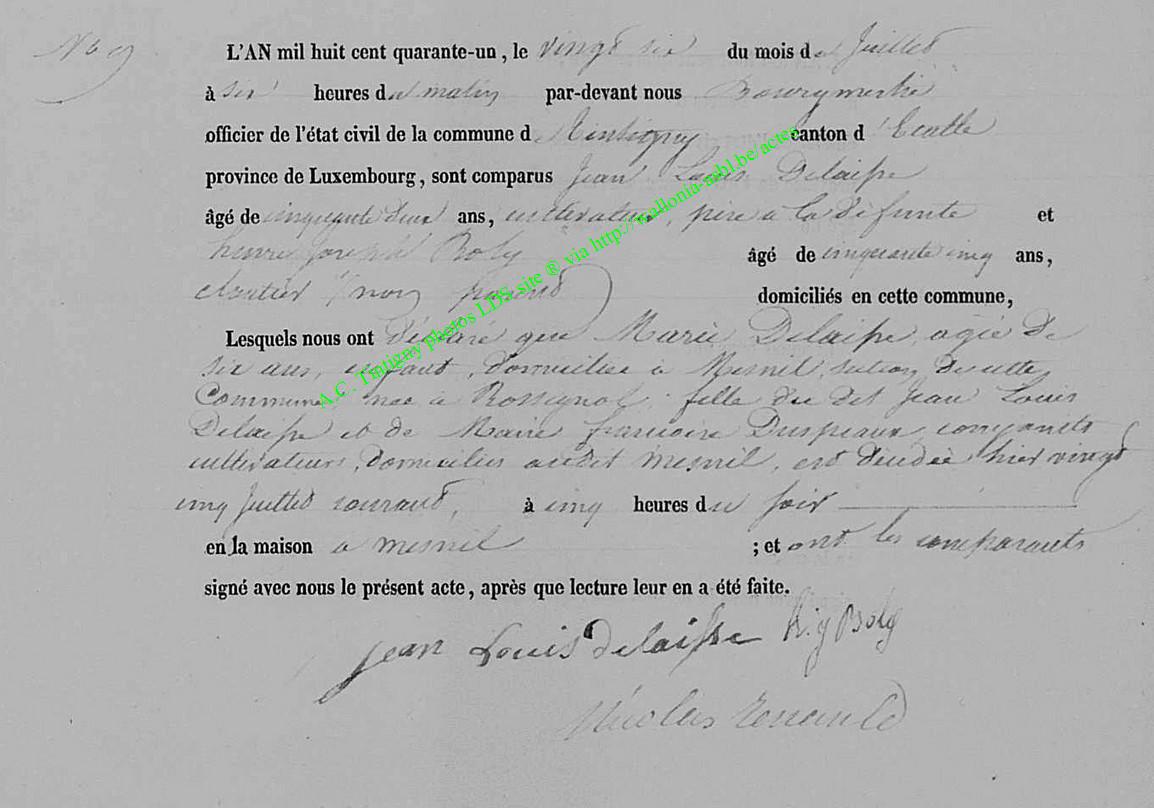 N° 9
L'AN mil huit cent quarante-un, le vingt six du mois de Juillet
à six heures du matin par-devant nous Bourgmestre
officier de l'état civil de la commune de Tintigny canton d'Etalle
province de Luxembourg, sont comparus Jean Louis Delaisse
âgé de cinquante deux ans, cultivateur, pere a la défunte et
henri joseph Boly âgé de cinquante cinq ans,
cloutier, non parent domiciliés en cette commune,
Lesquels nous ont déclaré que Marie Delaisse, agée de
six ans, enfant, domiciliée a Mesnil, section de cette
Commune née a Rossignol, fille du dit Jean Louis
Delaisse et de Marie françoise Duspeaux, conjoints
cultivateurs, domiciliés audit mesnil, est décédée hier vingt
cinq juillet courant, à cinq heures du soir
en la maison a mesnil ; et ont les comparants
signé avec nous le présent acte, après que lecture leur en a été faite.
jean Louis delaisse h. j Boly
Nicolas
A.C. Tintigny photos LDS site ® via http://wallonia-asbl.be/actes